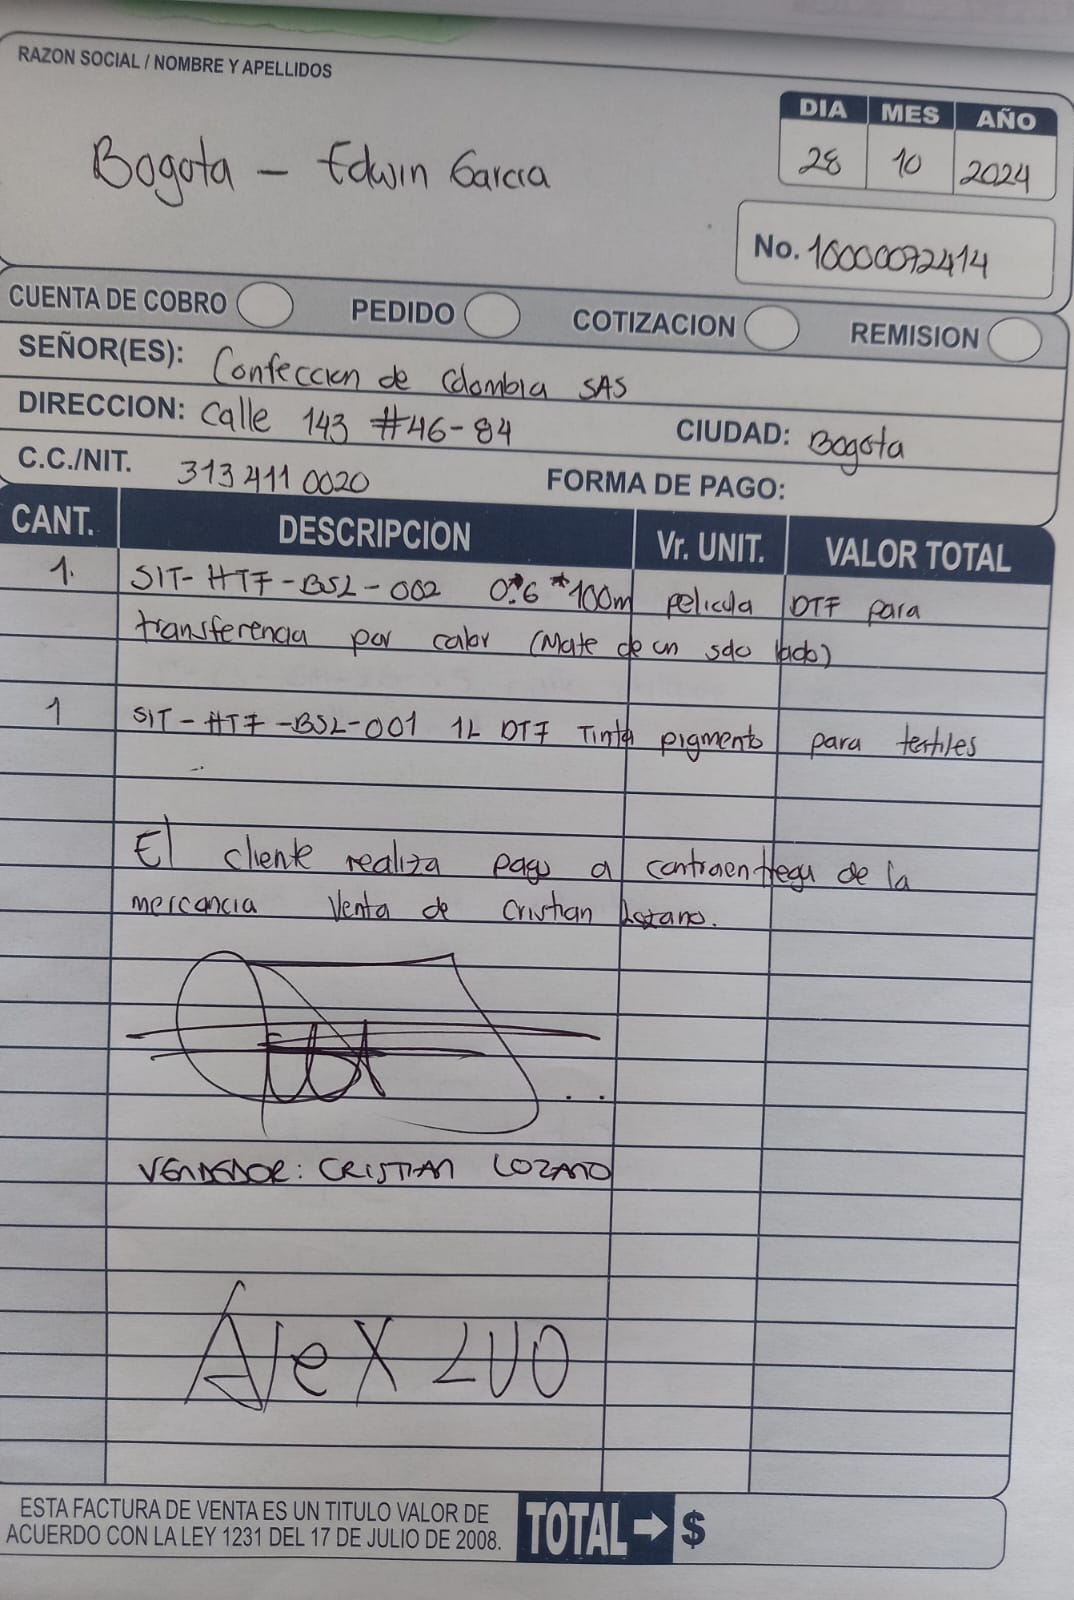 RAZON SOCIAL / NOMBRE Y APELLIDOS
DIA MES AÑO
28 10 2024
Bogota - Edwin Garcia
No. 16000072414
CUENTA DE COBRO PEDIDO COTIZACION REMISION
SEÑOR(ES): Confeccion de Colombia SAS
DIRECCION: Calle 143 #46-84 CIUDAD: Bogota
C.C./NIT. 313 411 0020 FORMA DE PAGO:
CANT. DESCRIPCION Vr. UNIT. VALOR TOTAL
1. SIT-HTF-BSL-002 0.6*100m pelicula DTF para
transferencia por calor (Mate de un solo lado)
1 SIT-HTF-BSL-001 1L DTF Tinta pigmento para textiles
El cliente realiza pago a contraentrega de la
mercancia Venta de Cristian Lozano.
VENDEDOR: CRISTIAN LOZANO
Álex LUO
ESTA FACTURA DE VENTA ES UN TITULO VALOR DE
ACUERDO CON LA LEY 1231 DEL 17 DE JULIO DE 2008.
TOTAL → $